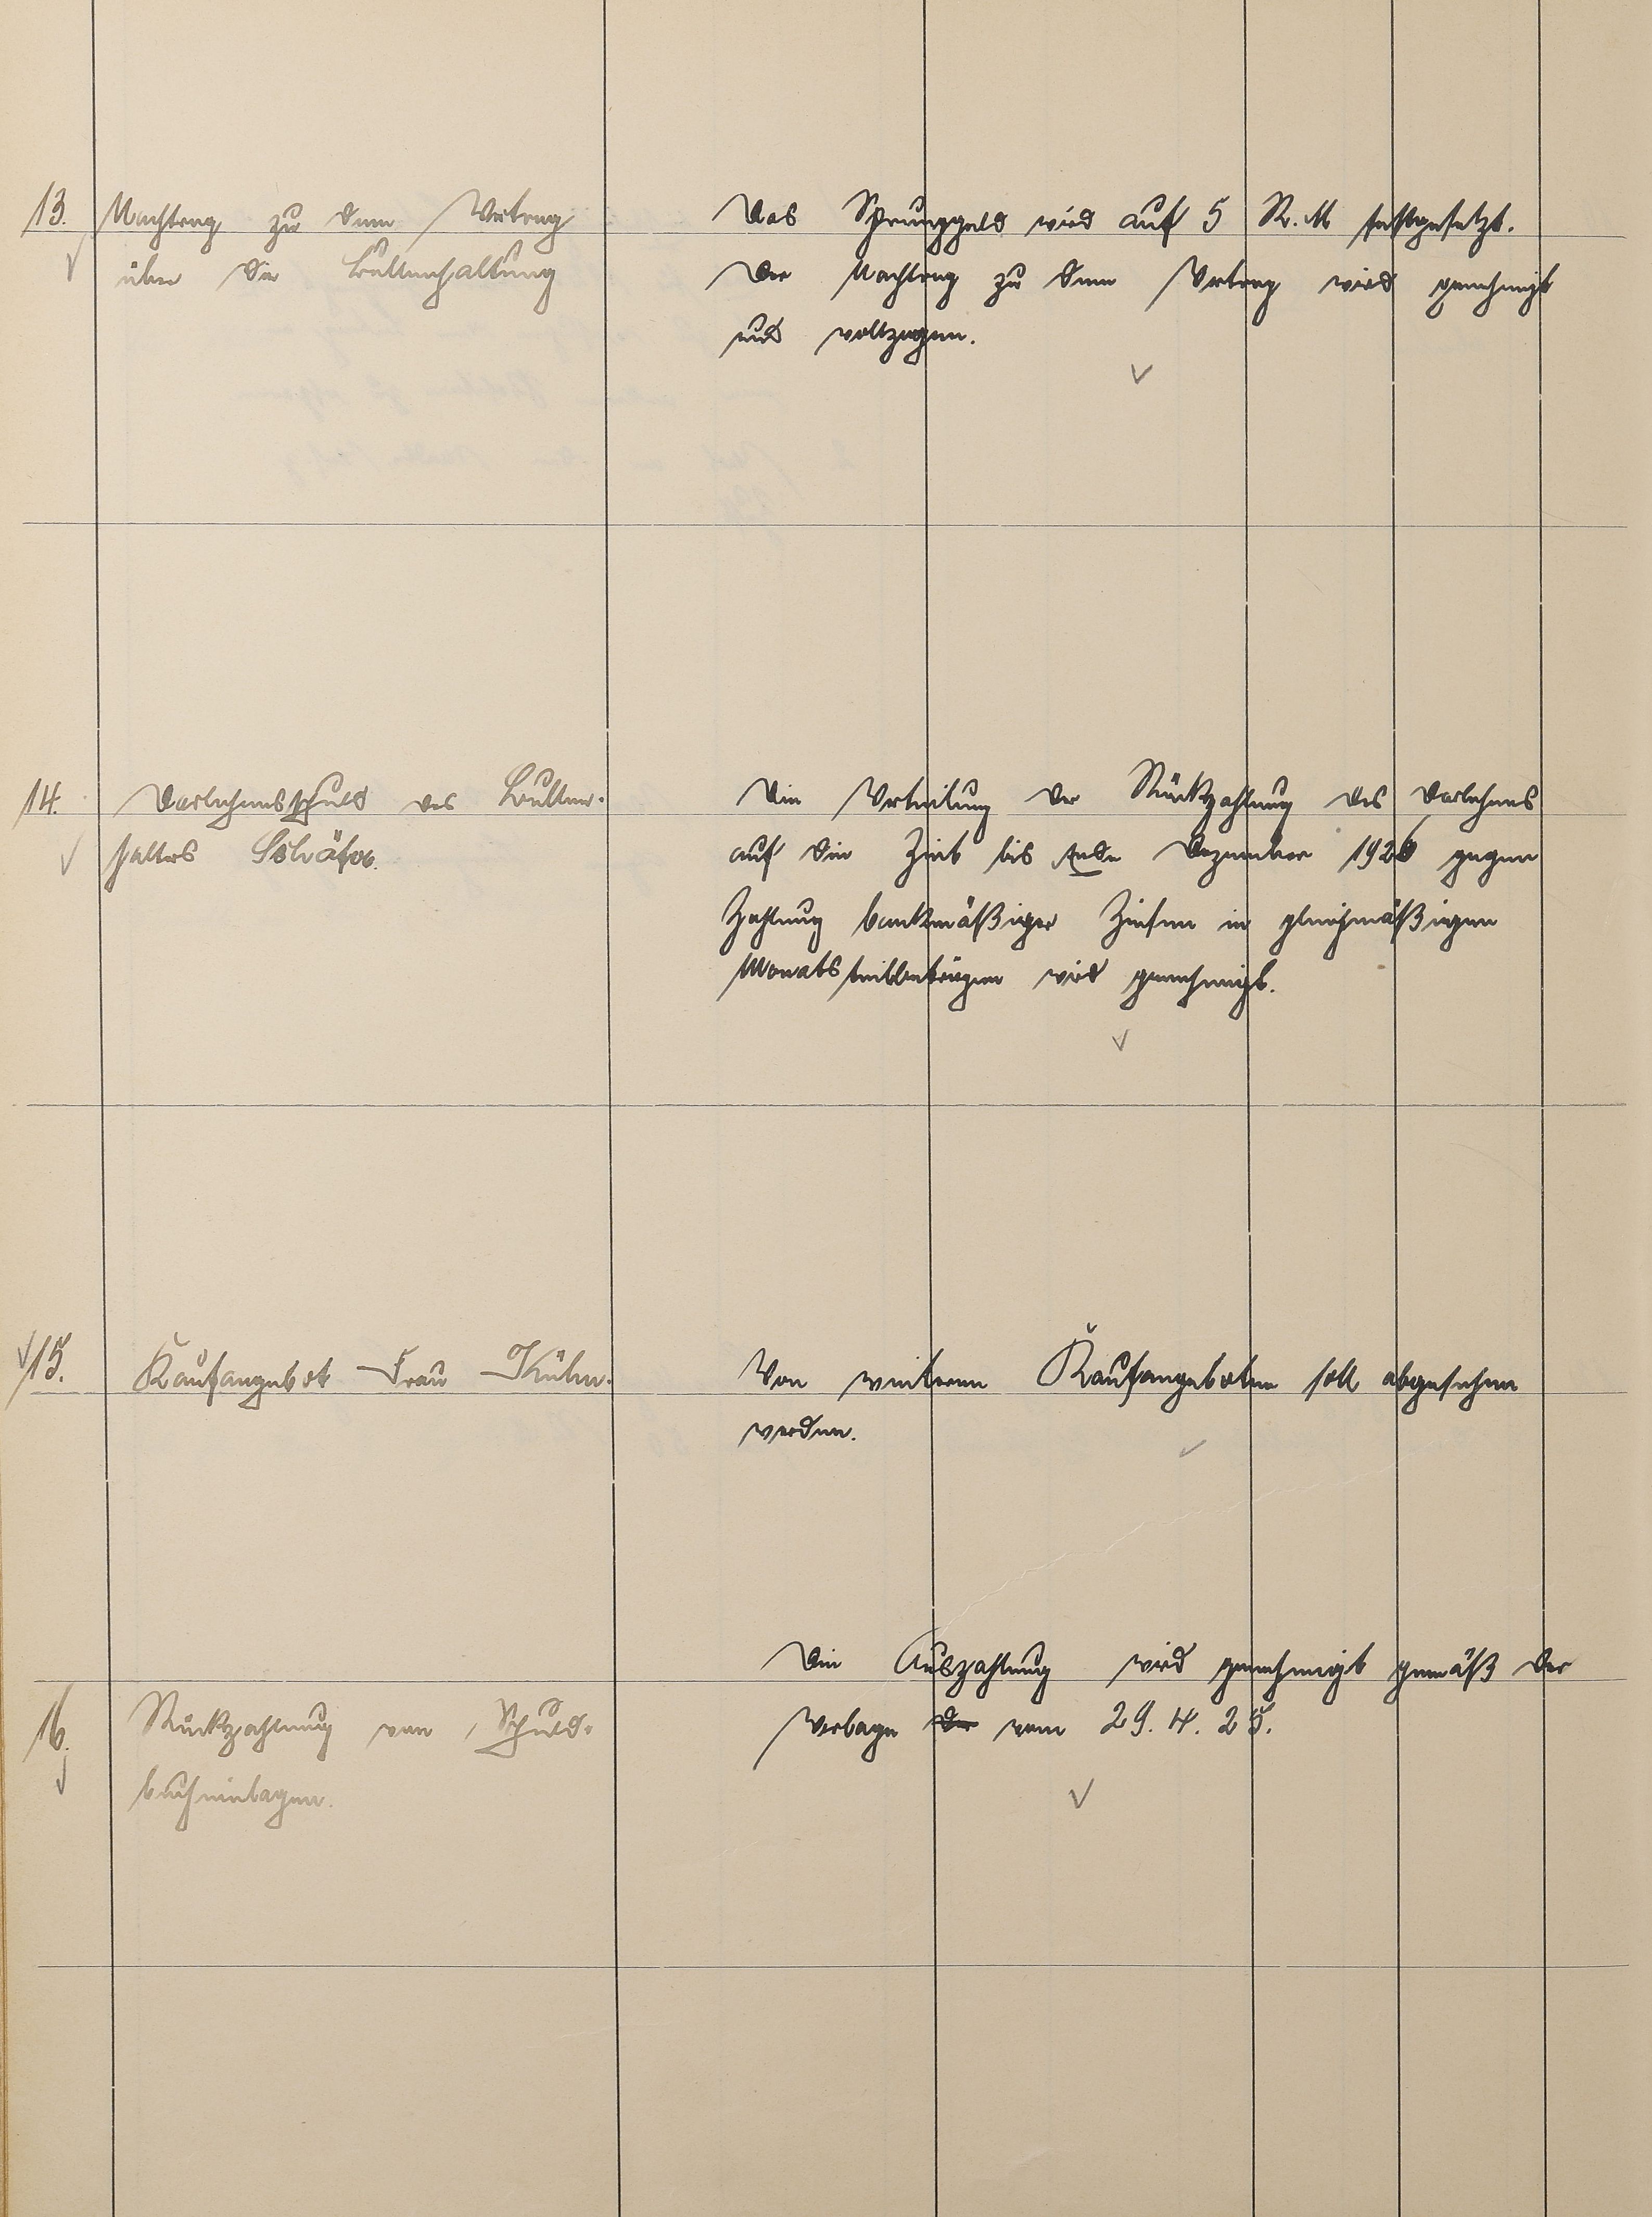 13. Nachtrag zu dem Vertrag
über die Bullenhaltung
Das Sprunggeld wird auf 5 R.M festgesetzt.
Der Nachtrag zu dem Vertrag wird genehmigt
und vollzogen.
14. Darlehensschuld des Bullen-
halters Schäfer.
Die Verteilung der Rückzahlung des Darlehens
auf die Zeit bis Ende Dezember 1926 gegen
Zahlung bankmäßiger Zinsen in gleichmäßigen
Monatsteilbeträgen wird genehmigt.
15. Kaufangebot Frau Kühn.
Von weiteren Kaufangeboten soll abgesehen
werden.
16. Rückzahlung von Schuld-
bucheinlagen.
Die Auszahlung wird genehmigt gemäß der
Vorlage der vom 29. 4. 25.